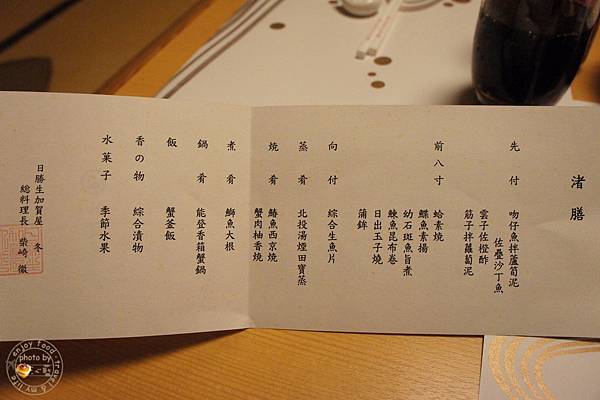 渚膳
先付 吻仔魚拌蘆筍泥
佐疊沙丁魚
雲子佐橙酢
筋子拌蘿蔔泥
前八寸 蛤素燒
鰈魚素揚
幼石斑魚旨煮
鰊魚昆布卷
日出玉子燒
蒲鉾
向付 綜合生魚片
蒸肴 北投湯煙田寶蒸
燒肴 鰆魚西京燒
蟹肉柚香燒
煮肴 鰤魚大根
鍋肴 能登香箱蟹鍋
飯 蟹釜飯
香の物 綜合漬物
水菓子 季節水果
日勝生加賀屋 冬
総料理長 柴崎 徹
enjoy food
photo by
travel & my life